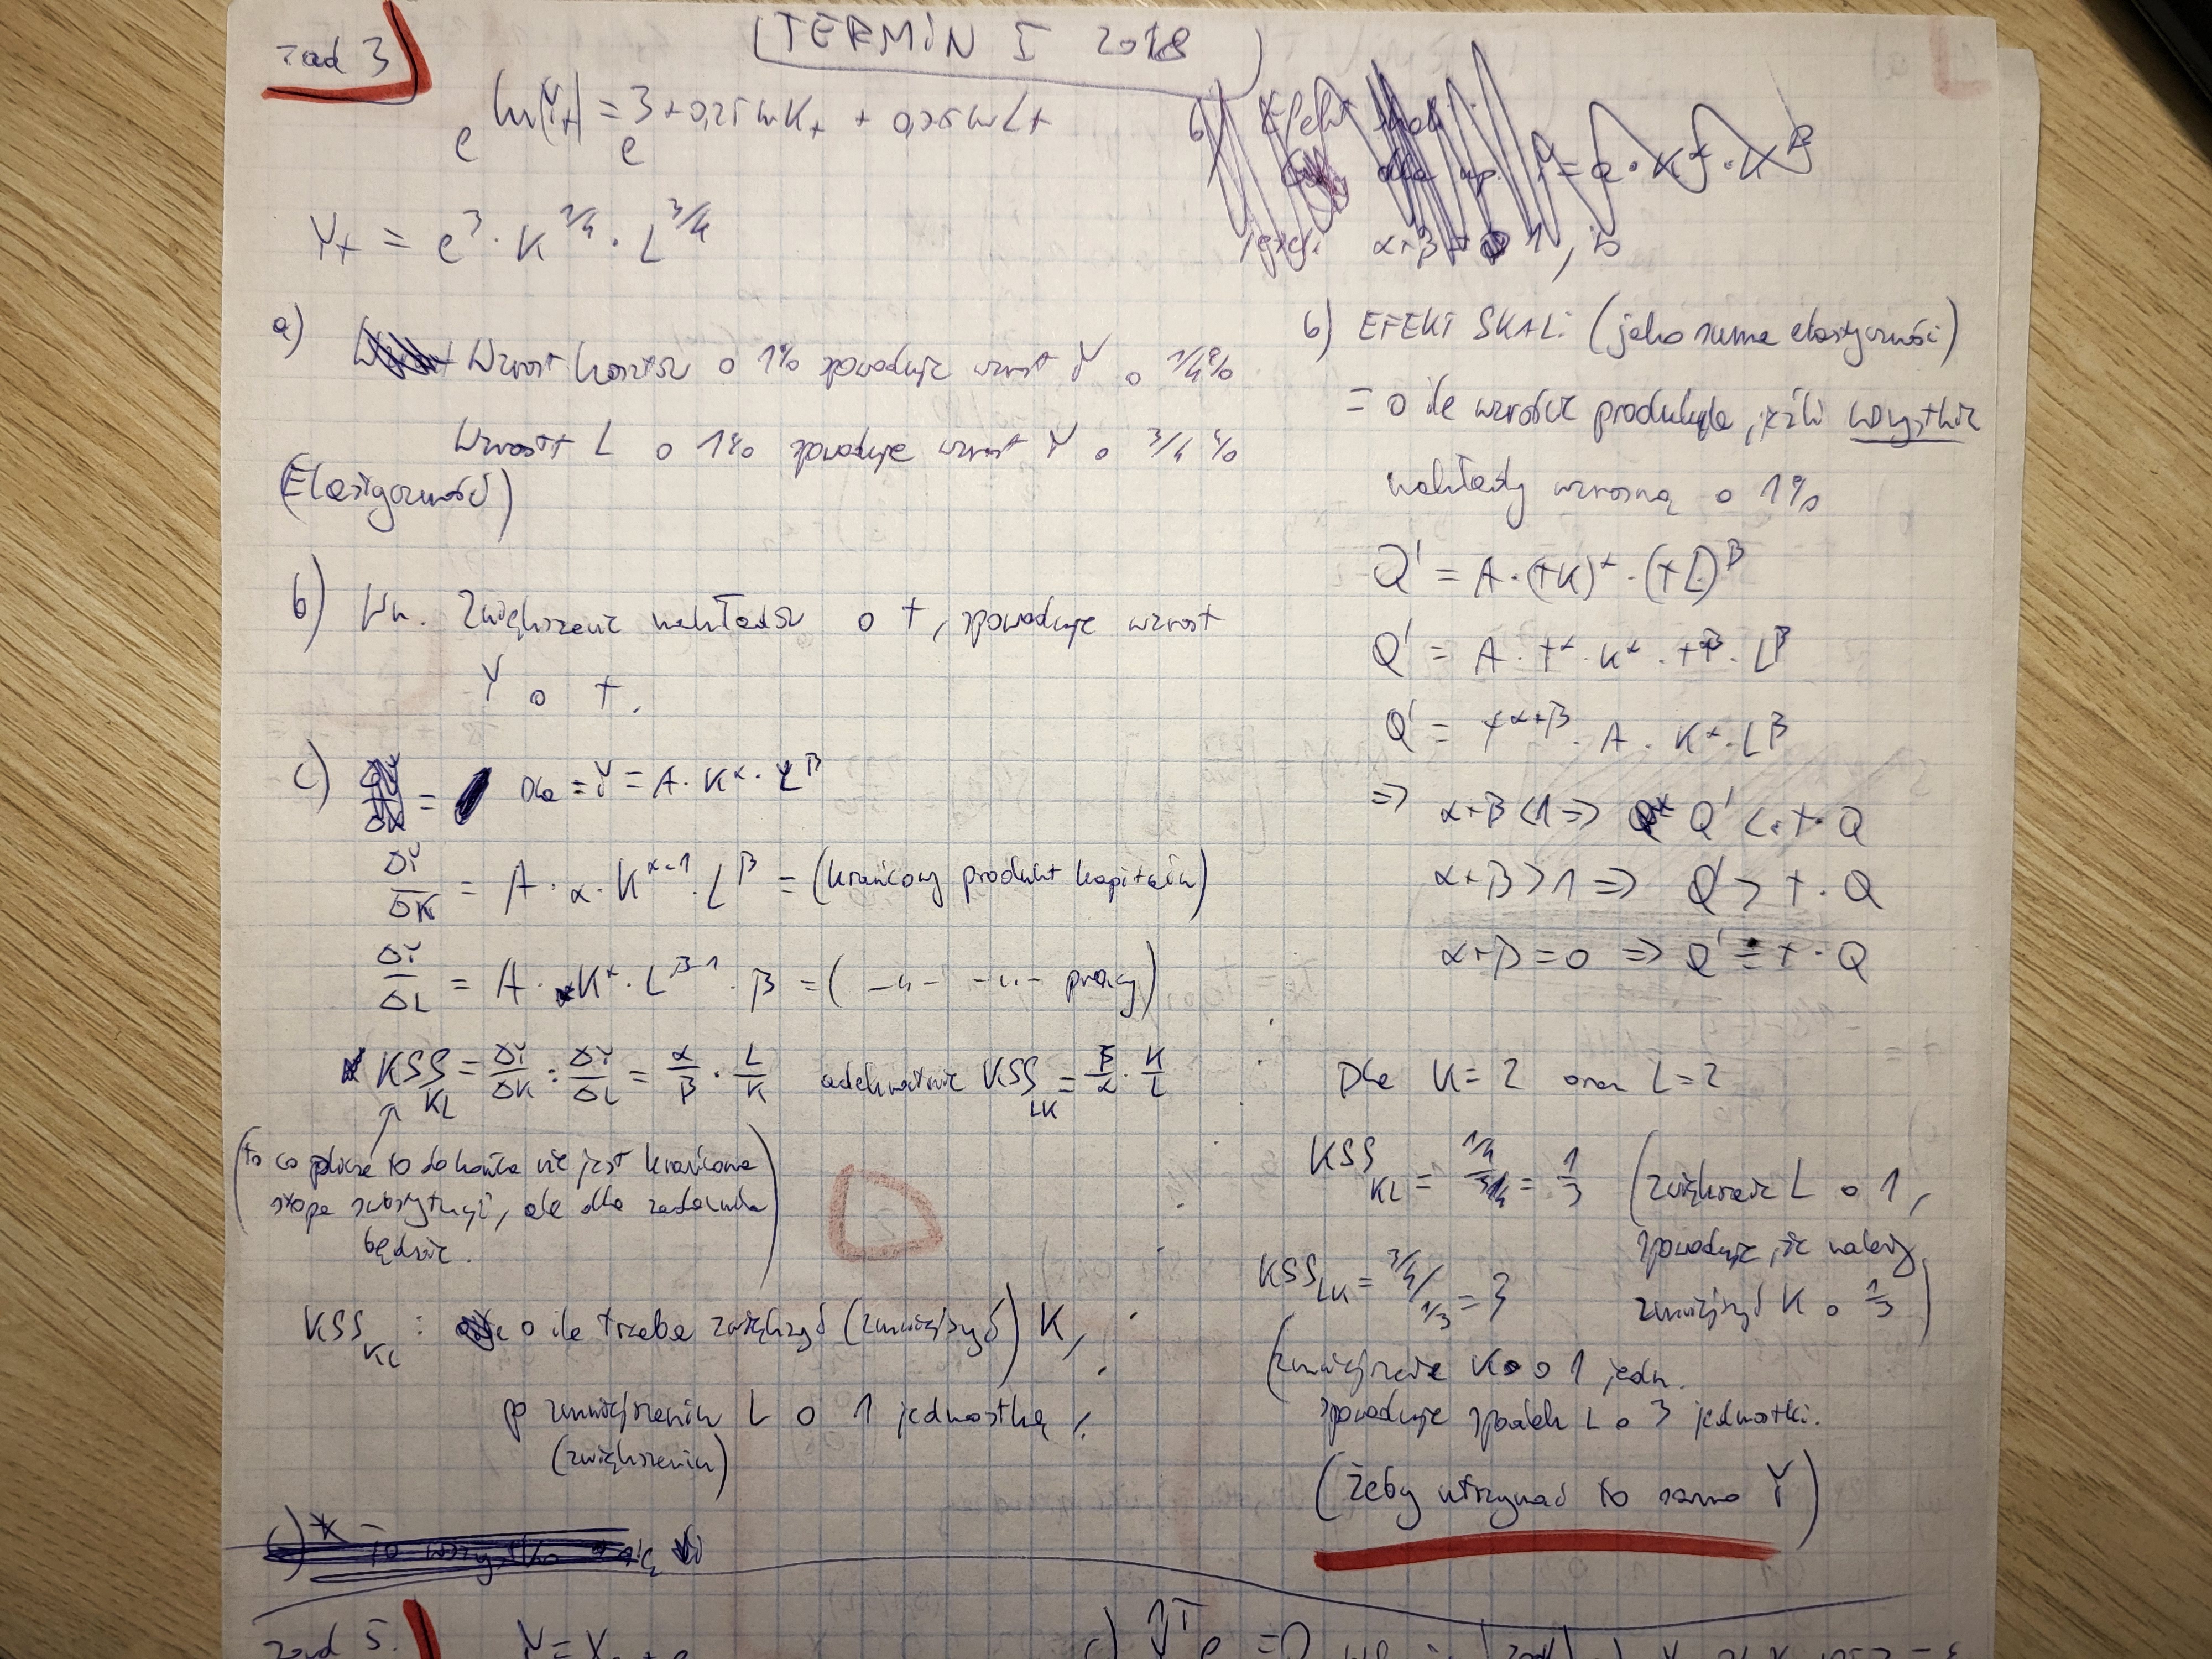 zad 3
TERMIN I 2018
e^{ln(Y_t)} = e^{3 + 0,25 ln K_t + 0,75 ln L_t}
Y_t = e^3 · K^{1/4} · L^{3/4}
a) Wzrost kosztu o 1% spowoduje wzrost Y o 1/4%
Wzrost L o 1% spowoduje wzrost Y o 3/4%
(Elastyczność)
b) Zwiększenie nakładów o t, spowoduje wzrost
Y o t.
c) Dla = Y = A · K^α · L^β
ΔY/ΔK = A · α · K^{α-1} · L^β = (krańcowy produkt kapitału)
ΔY/ΔL = A · K^α · L^{β-1} · β = ( -"- -"- pracy)
KSS_{KL} = ΔY/ΔK : ΔY/ΔL = α/β · L/K adekwatnie KSS_{LK} = β/α · K/L
(to co piszę to do końca nie jest krańcowa
stopa substytucji, ale dla zadania
będzie.)
KSS_{KL} : o ile trzeba zwiększyć (zmniejszyć) K,
po zmniejszeniu L o 1 jednostkę.
(zwiększeniu)
jeżeli α+β = 1, to
b) EFEKT SKALI (jako suma elastyczności)
= o ile wzrośnie produkcja, jeżli wszystkie
nakłady wzrosną o 1%
Q' = A · (tK)^α · (tL)^β
Q' = A · t^α · K^α · t^β · L^β
Q' = t^{α+β} · A · K^α · L^β
⇒ α+β < 1 ⇒ Q' < t · Q
α+β > 1 ⇒ Q' > t · Q
α+β = 0 ⇒ Q' = t · Q
Dla K = 2 oraz L = 2
KSS_{KL} = 1/4 / 3/4 = 1/3 (zwiększenie L o 1,
spowoduje, że należy
zmniejszyć K o 1/3)
KSS_{LK} = 3/4 / 1/3 = 3
(zmniejszenie K o 1 jedn.
spowoduje spadek L o 3 jednostki.
(żeby utrzymać to samo Y)
zad 5.